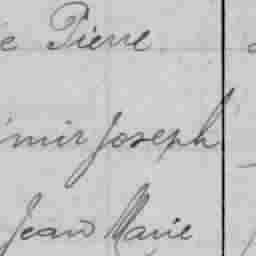 e Pierre
mir Joseph
Jean Marie